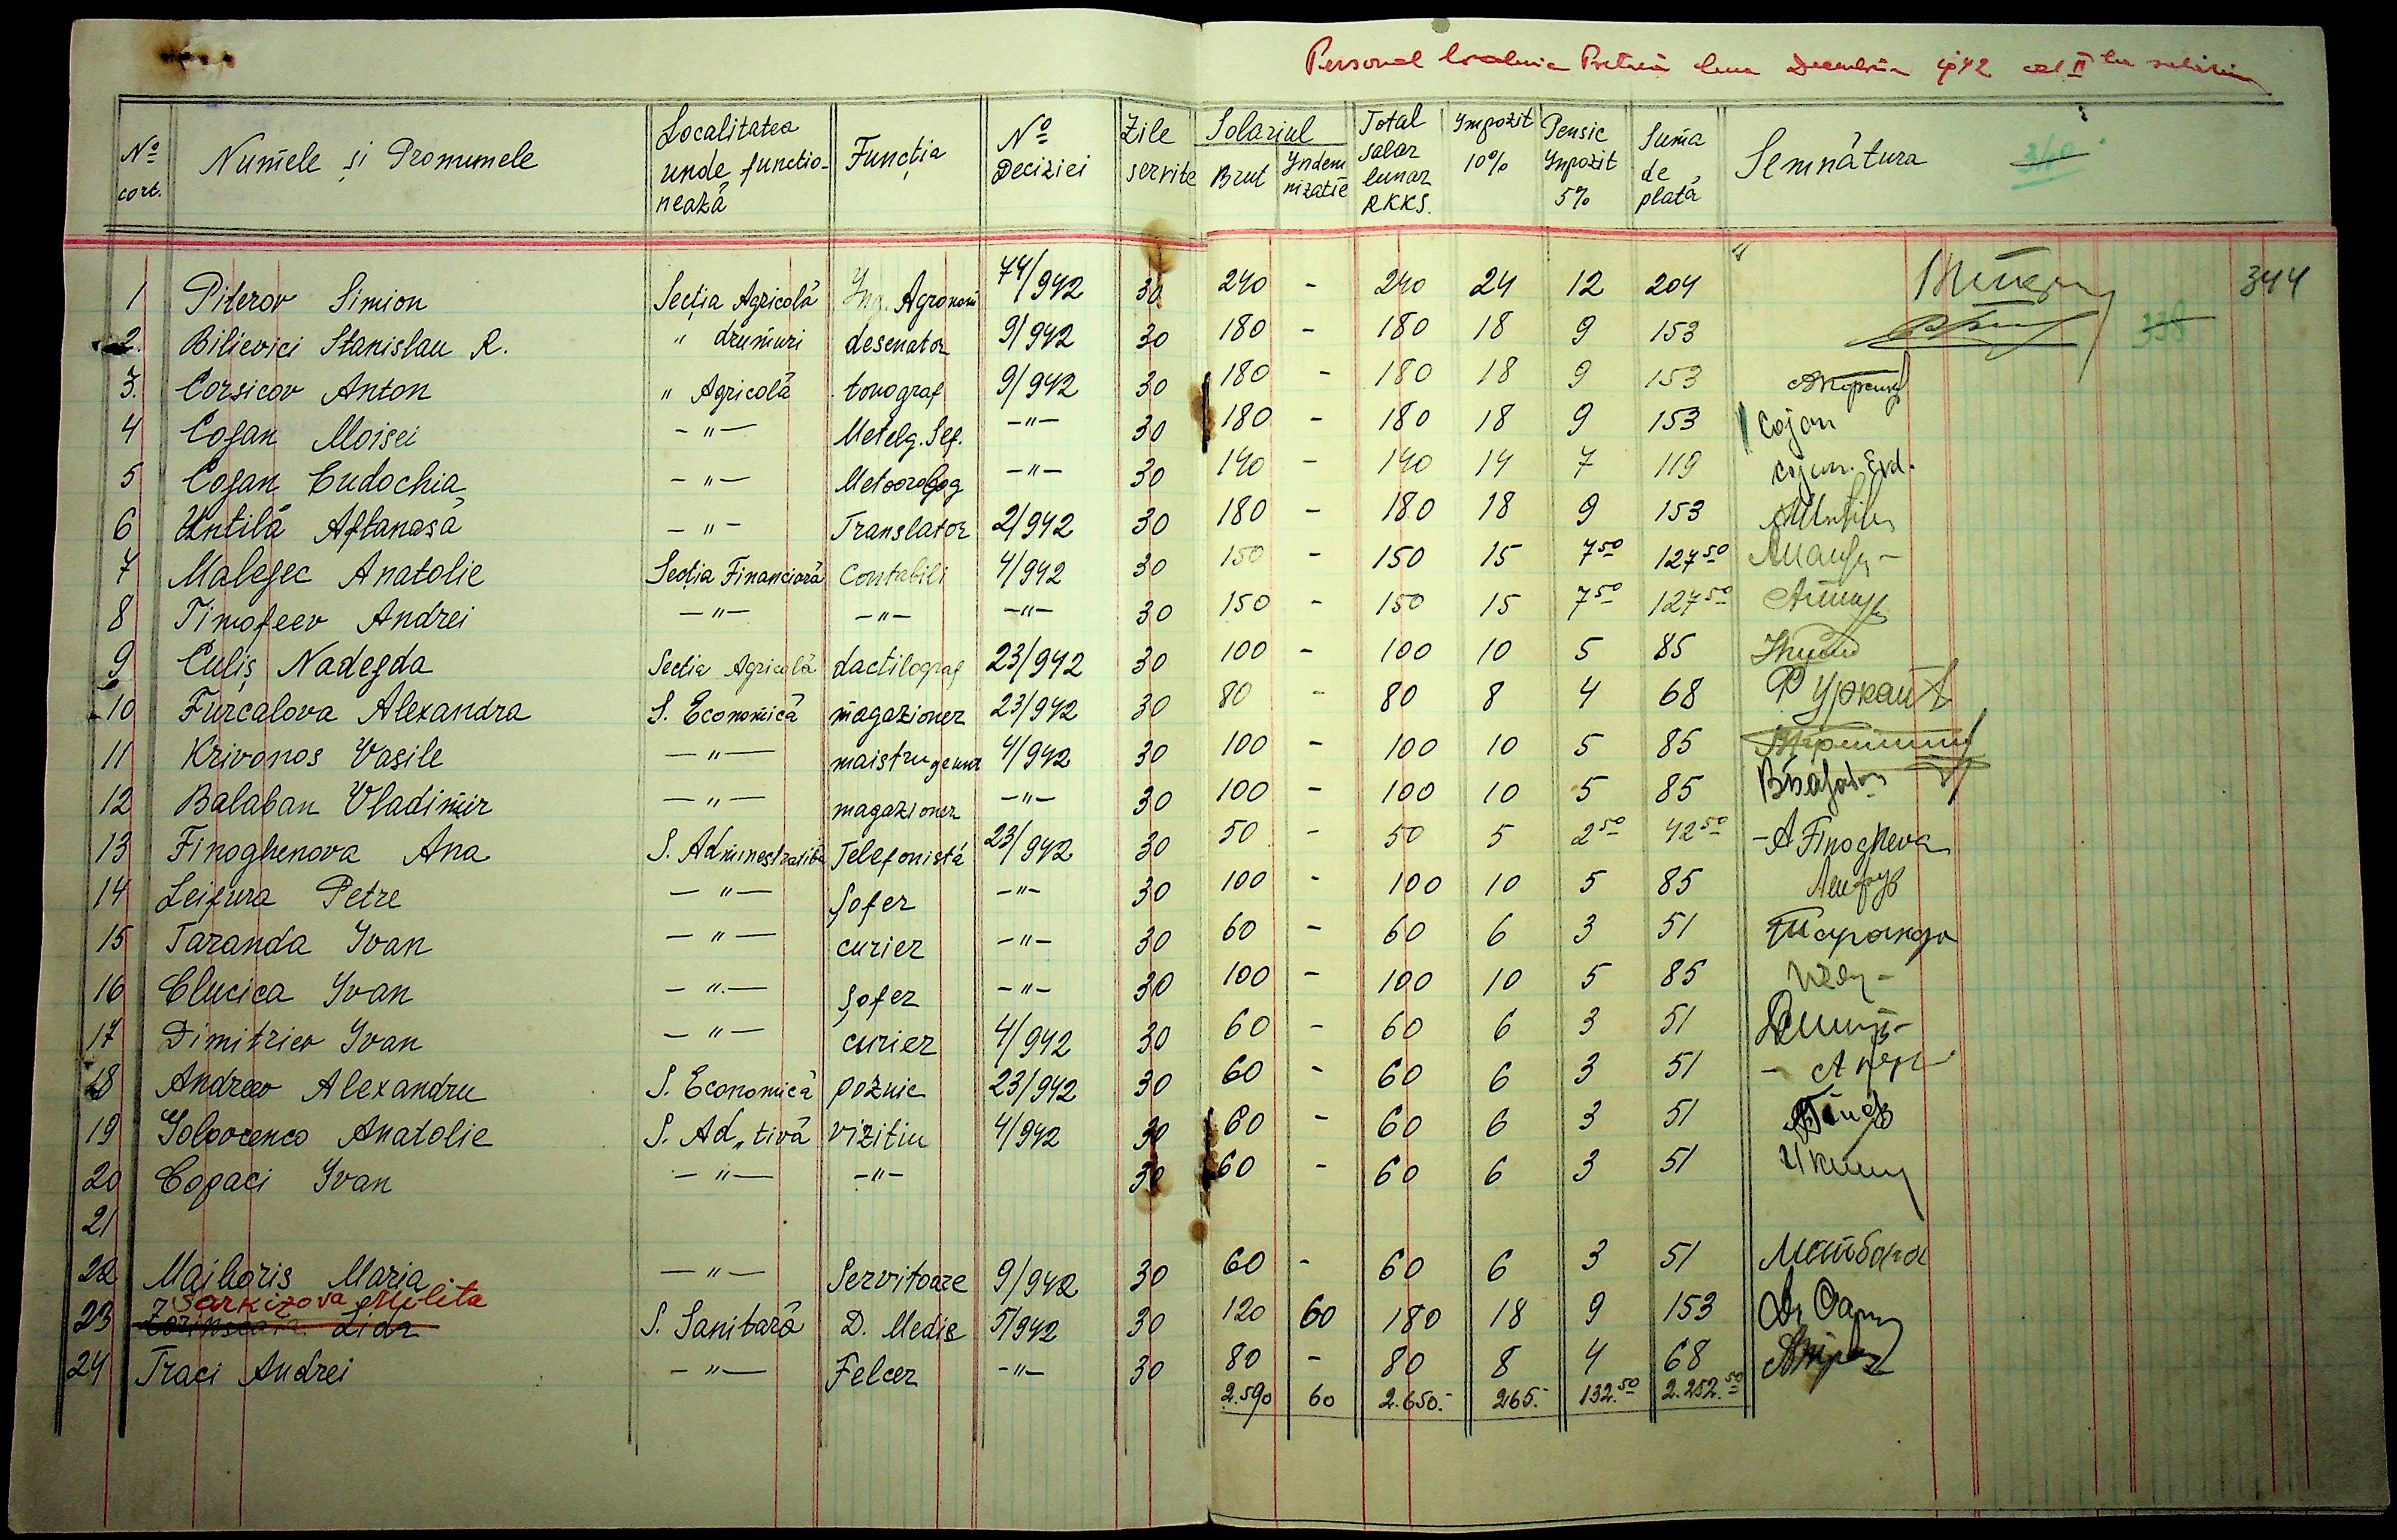 Personal Decembrie 1942 al II lea
Nº cort. Numele și Pronumele Localitatea unde functionează Funcția Nº Deciziei Zile servite Salariul Brut Yndemnizatie Total salar lunar RKKS. Ympozit 10% Pensie Ympozit 5% Suma de plată Semnătura 340
1 Piterov Simion Secția Agricolă Yng. Agronom 74/942 30 240 - 240 24 12 204 344
2. Bilievici Stanislau R. " drumuri desenator 9/942 30 180 - 180 18 9 153 338
3. Corsicov Anton " Agricolă tonograf 9/942 30 180 - 180 18 9 153
4 Cojan Moisei - " - Metelg. Sef. - " - 30 180 - 180 18 9 153 Cojan
5 Cojan Eudochia - " - Meteorolog - " - 30 140 - 140 14 7 119 Cojan. Evd.
6 Untilă Aftanasă - " - Translator 2/942 30 180 - 180 18 9 153
7 Malejec Anatolie Secția Financiară Contabili 4/942 30 150 - 150 15 7 50 127 50
8 Timofeev Andrei - " - - " - - " - 30 150 - 150 15 7 50 127 50
9 Culiș Nadejda Sectia Agricolă dactilograf 23/942 30 100 - 100 10 5 85
10 Furcalova Alexandra S. Economică magazioner 23/942 30 80 - 80 8 4 68
11 Krivonos Vasile - " - maistru geamr 4/942 30 100 - 100 10 5 85
12 Balaban Vladimir - " - magazioner - " - 30 100 - 100 10 5 85
13 Finoghenova Ana S. Administrativă Telefonistă 23/942 30 50 - 50 5 2 50 42 50 - A Finogheva
14 Leifura Petre - " - Șofer - " - 30 100 - 100 10 5 85
15 Taranda Yvan - " - curier - " - 30 60 - 60 6 3 51 Таранда
16 Clucica Yvan - " - șofer - " - 30 100 - 100 10 5 85
17 Dimitriev Yvan - " - curier 4/942 30 60 - 60 6 3 51
18 Andreev Alexandru S. Economică poznic 23/942 30 60 - 60 6 3 51
19 Golovcenco Anatolie S. Ad„tivă vizitiu 4/942 30 60 - 60 6 3 51
20 Copaci Yvan - " - - " - 30 60 - 60 6 3 51
21
22 Majboris Maria - " - Servitoare 9/942 30 60 - 60 6 3 51
Sarkizova Milita
23 Lida S. Sanitară D. Medic 5/942 30 120 60 180 18 9 153
24 Traci Andrei - " - Felcer - " - 30 80 - 80 8 4 68
2.590 60 2.650.- 265.- 132.50 2.252.50